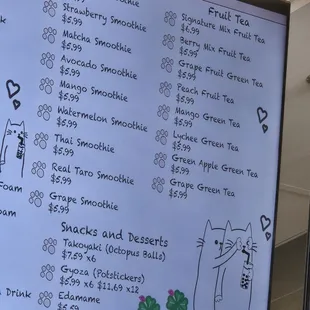 Strawberry Smoothie
$5.99
Matcha Smoothie
$5.99
Avocado Smoothie
$5.99
Mango Smoothie
$5.99
Watermelon Smoothie
$5.99
Thai Smoothie
$5.99
Real Taro Smoothie
$5.99
Grape Smoothie
$5.99
Snacks and Desserts
Takoyaki (Octopus Balls)
$7.59 x6
Gyoza (Potstickers)
$5.99 x6 $11.69 x12
Edamame
$5.99
Fruit Tea
Signature Mix Fruit Tea
$6.99
Berry Mix Fruit Tea
$5.99
Grape Fruit Green Tea
$5.99
Peach Fruit Tea
$5.99
Mango Green Tea
$5.99
Lychee Green Tea
$5.99
Green Apple Green Tea
$5.99
Grape Green Tea
$5.99
Foam
oam
Drink